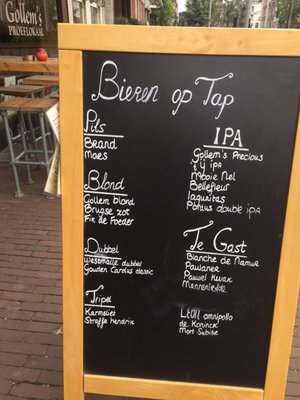 Gollem's
PROEFLOKAAL
Bieren op Tap
Pils
Brand
Moes
Blond
Gollem blond
Brugse zot
Fix de Foeder
Dubbel
Westmalle dubbel
Gouden Carolus classic
Tripel
Karmeliet
Straffe hendrik
IPA
Gollem's Precious
't IJ IPA
Mooie Nel
Bellefleur
Lagunitas
double IPA
Te Gast
Blanche de Namur
Paulaner
Pauwel Kwak
Mannenliefde
omnipollo
de Koninck
Mort Subite